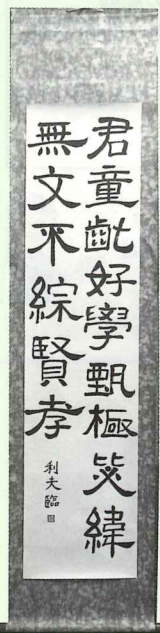 君童齔好學甄極毖緯
無文不綜賢孝
利夫臨